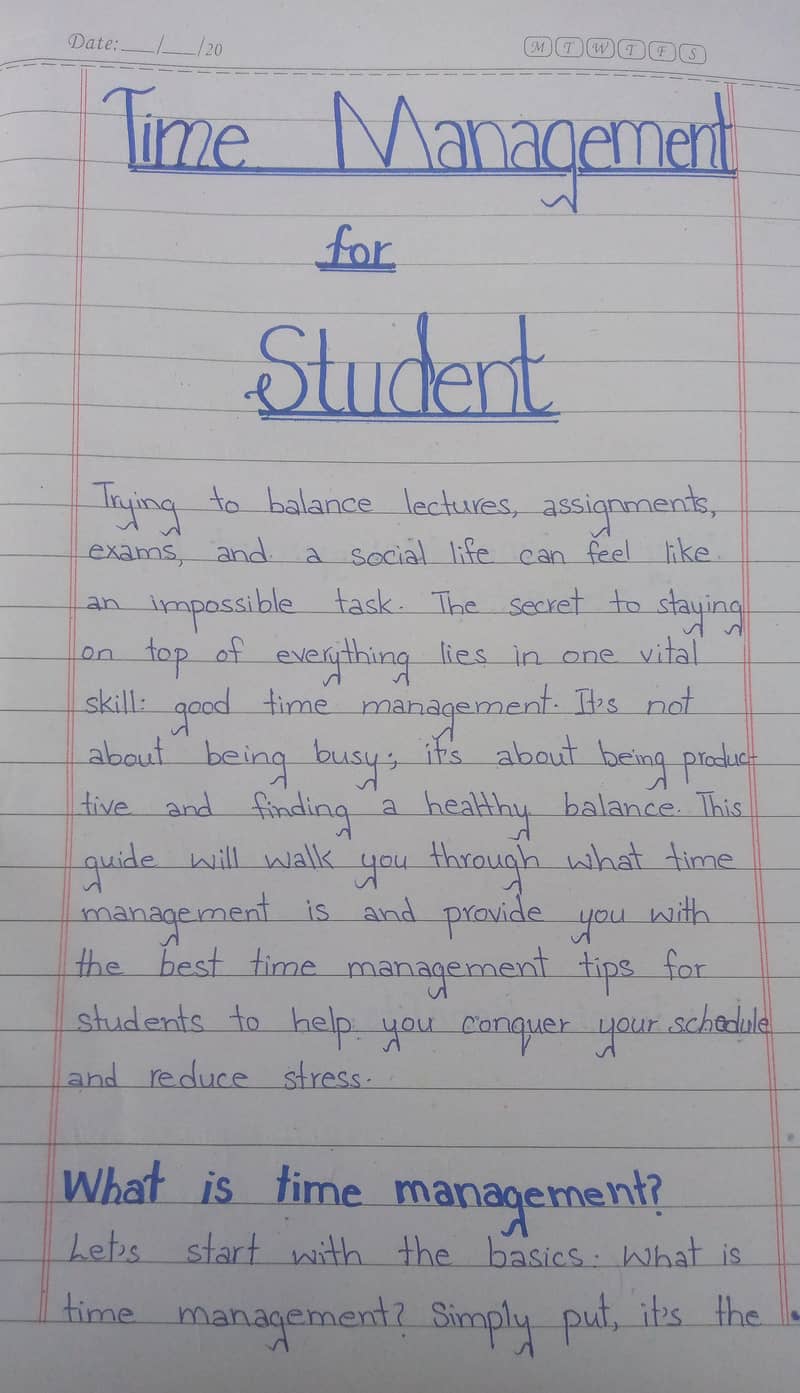 Date:___/___/20 M T W T F S
Time Management
for
Student
Trying to balance lectures, assignments,
exams, and a social life can feel like
an impossible task. The secret to staying
on top of everything lies in one vital
skill: good time management. It's not
about being busy; it's about being product
tive and finding a healthy balance. This
guide will walk you through what time
management is and provide you with
the best time management tips for
students to help you conquer your schedule
and reduce stress.
What is time management?
Let's start with the basics. What is
time management? Simply put, it's the